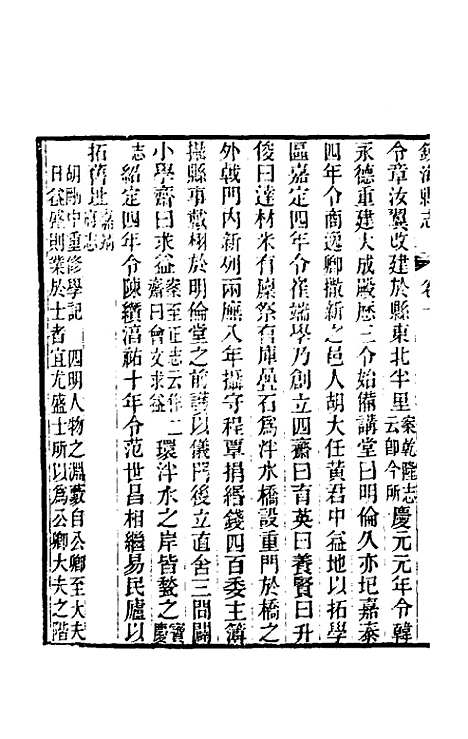 鎮海縣志 卷十
令章汝翼改建於縣東北半里案乾隆志云卽今所慶元元年令韓
永德重建大成殿歷三令始備講堂曰明倫久亦圮嘉泰
四年令商逸卿撤新之邑人胡大任黃君中益地以拓學
區嘉定四年令崔端學乃創立四齋曰育英曰養賢曰升
俊曰達材米有廩祭有庫甃石爲泮水橋設重門於橋之
外戟門內新列兩廡八年攝守程覃捐緡錢四百委主簿
攝縣事戴栩於明倫堂之前護以儀門後立直舍三間闢
小學齋曰求益案至正志云作二齋曰會文求益環泮水之岸皆甃之寶慶
志紹定四年令陳纘淳祐十年令范世昌相繼易民廬以
拓舊址嘉靖府志
胡助中重修學記 四明人物之淵藪自公卿至大夫
日益盛則業於士者宜尤盛士所以爲公卿大夫之階